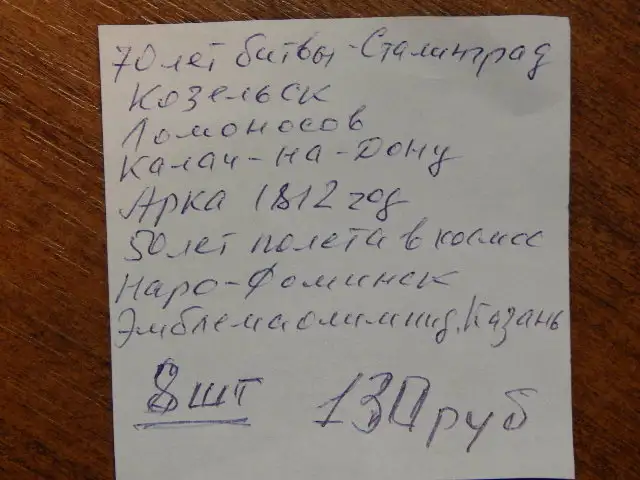 70 лет битвы-Сталинград
Козельск
Ломоносов
Калач-на-Дону
Арка 1812 год
50 лет полета в космос
Наро-Фоминск
Эмблема олимпид. Казань
8 шт 130 руб